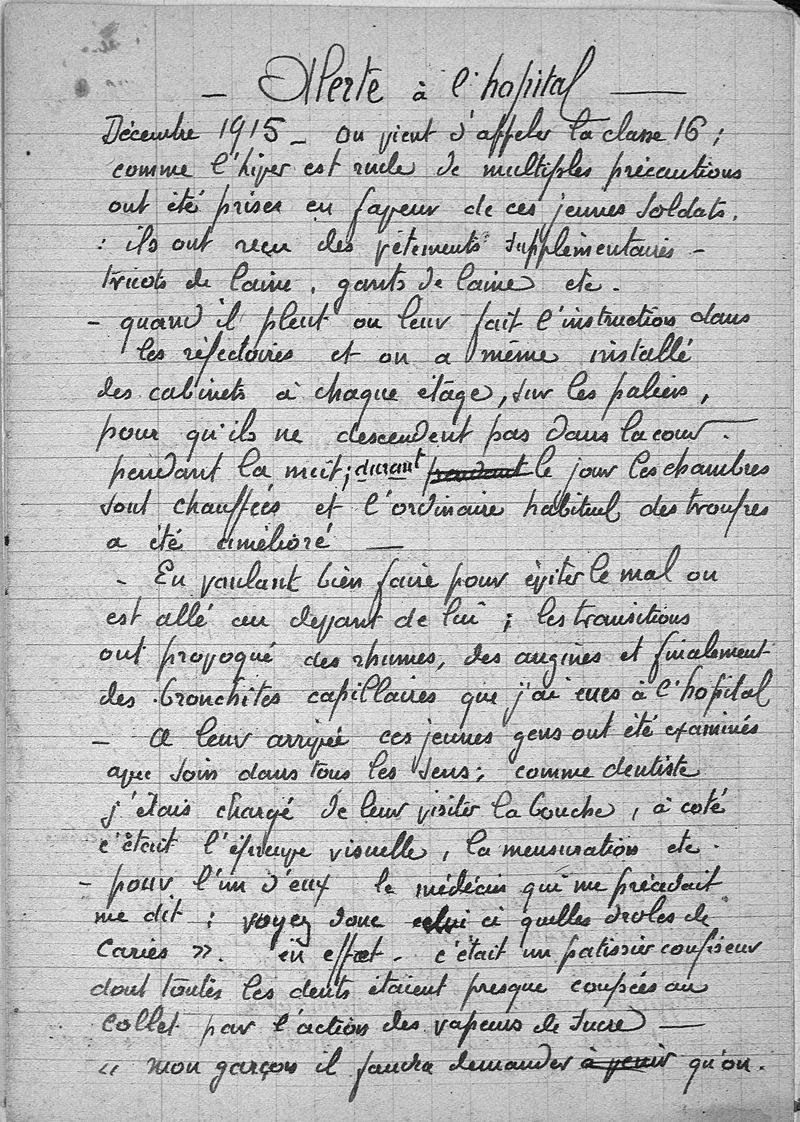 — Alerte à l'hopital —
Décembre 1915 — on vient d'appeler la classe 16 ;
comme l'hiver est rude de multiples précautions
ont été prises en faveur de ces jeunes soldats.
: ils ont reçu des vêtements supplémentaires —
tricots de laine, gants de laine etc.
— quand il pleut on leur fait l'instruction dans
les réfectoires et on a même installé
des cabinets à chaque étage, sur les paliers,
pour qu'ils ne descendent pas dans la cour.
pendant la nuit ; durant pendant le jour les chambres
sont chauffées et l'ordinaire habituel des troupes
a été amélioré —
— En voulant bien faire pour éviter le mal on
est allé au devant de lui ; les transitions
ont provoqué des rhumes, des angines et finalement
des bronchites capillaires que j'ai eues à l'hopital
— A leur arrivée ces jeunes gens ont été examinés
avec soin dans tous les sens ; comme dentiste
j'étais chargé de leur visiter la bouche, à coté
c'était l'épreuve visuelle, la mensuration etc.
— pour l'un d'eux le médecin qui me précédait
me dit : voyez donc celui ci quelles droles de
caries ». en effet — c'était un patissier confiseur
dont toutes les dents étaient presque coupées au
collet par l'action des vapeurs de sucre —
« mon garçon il faudra demander à venir qu'on.